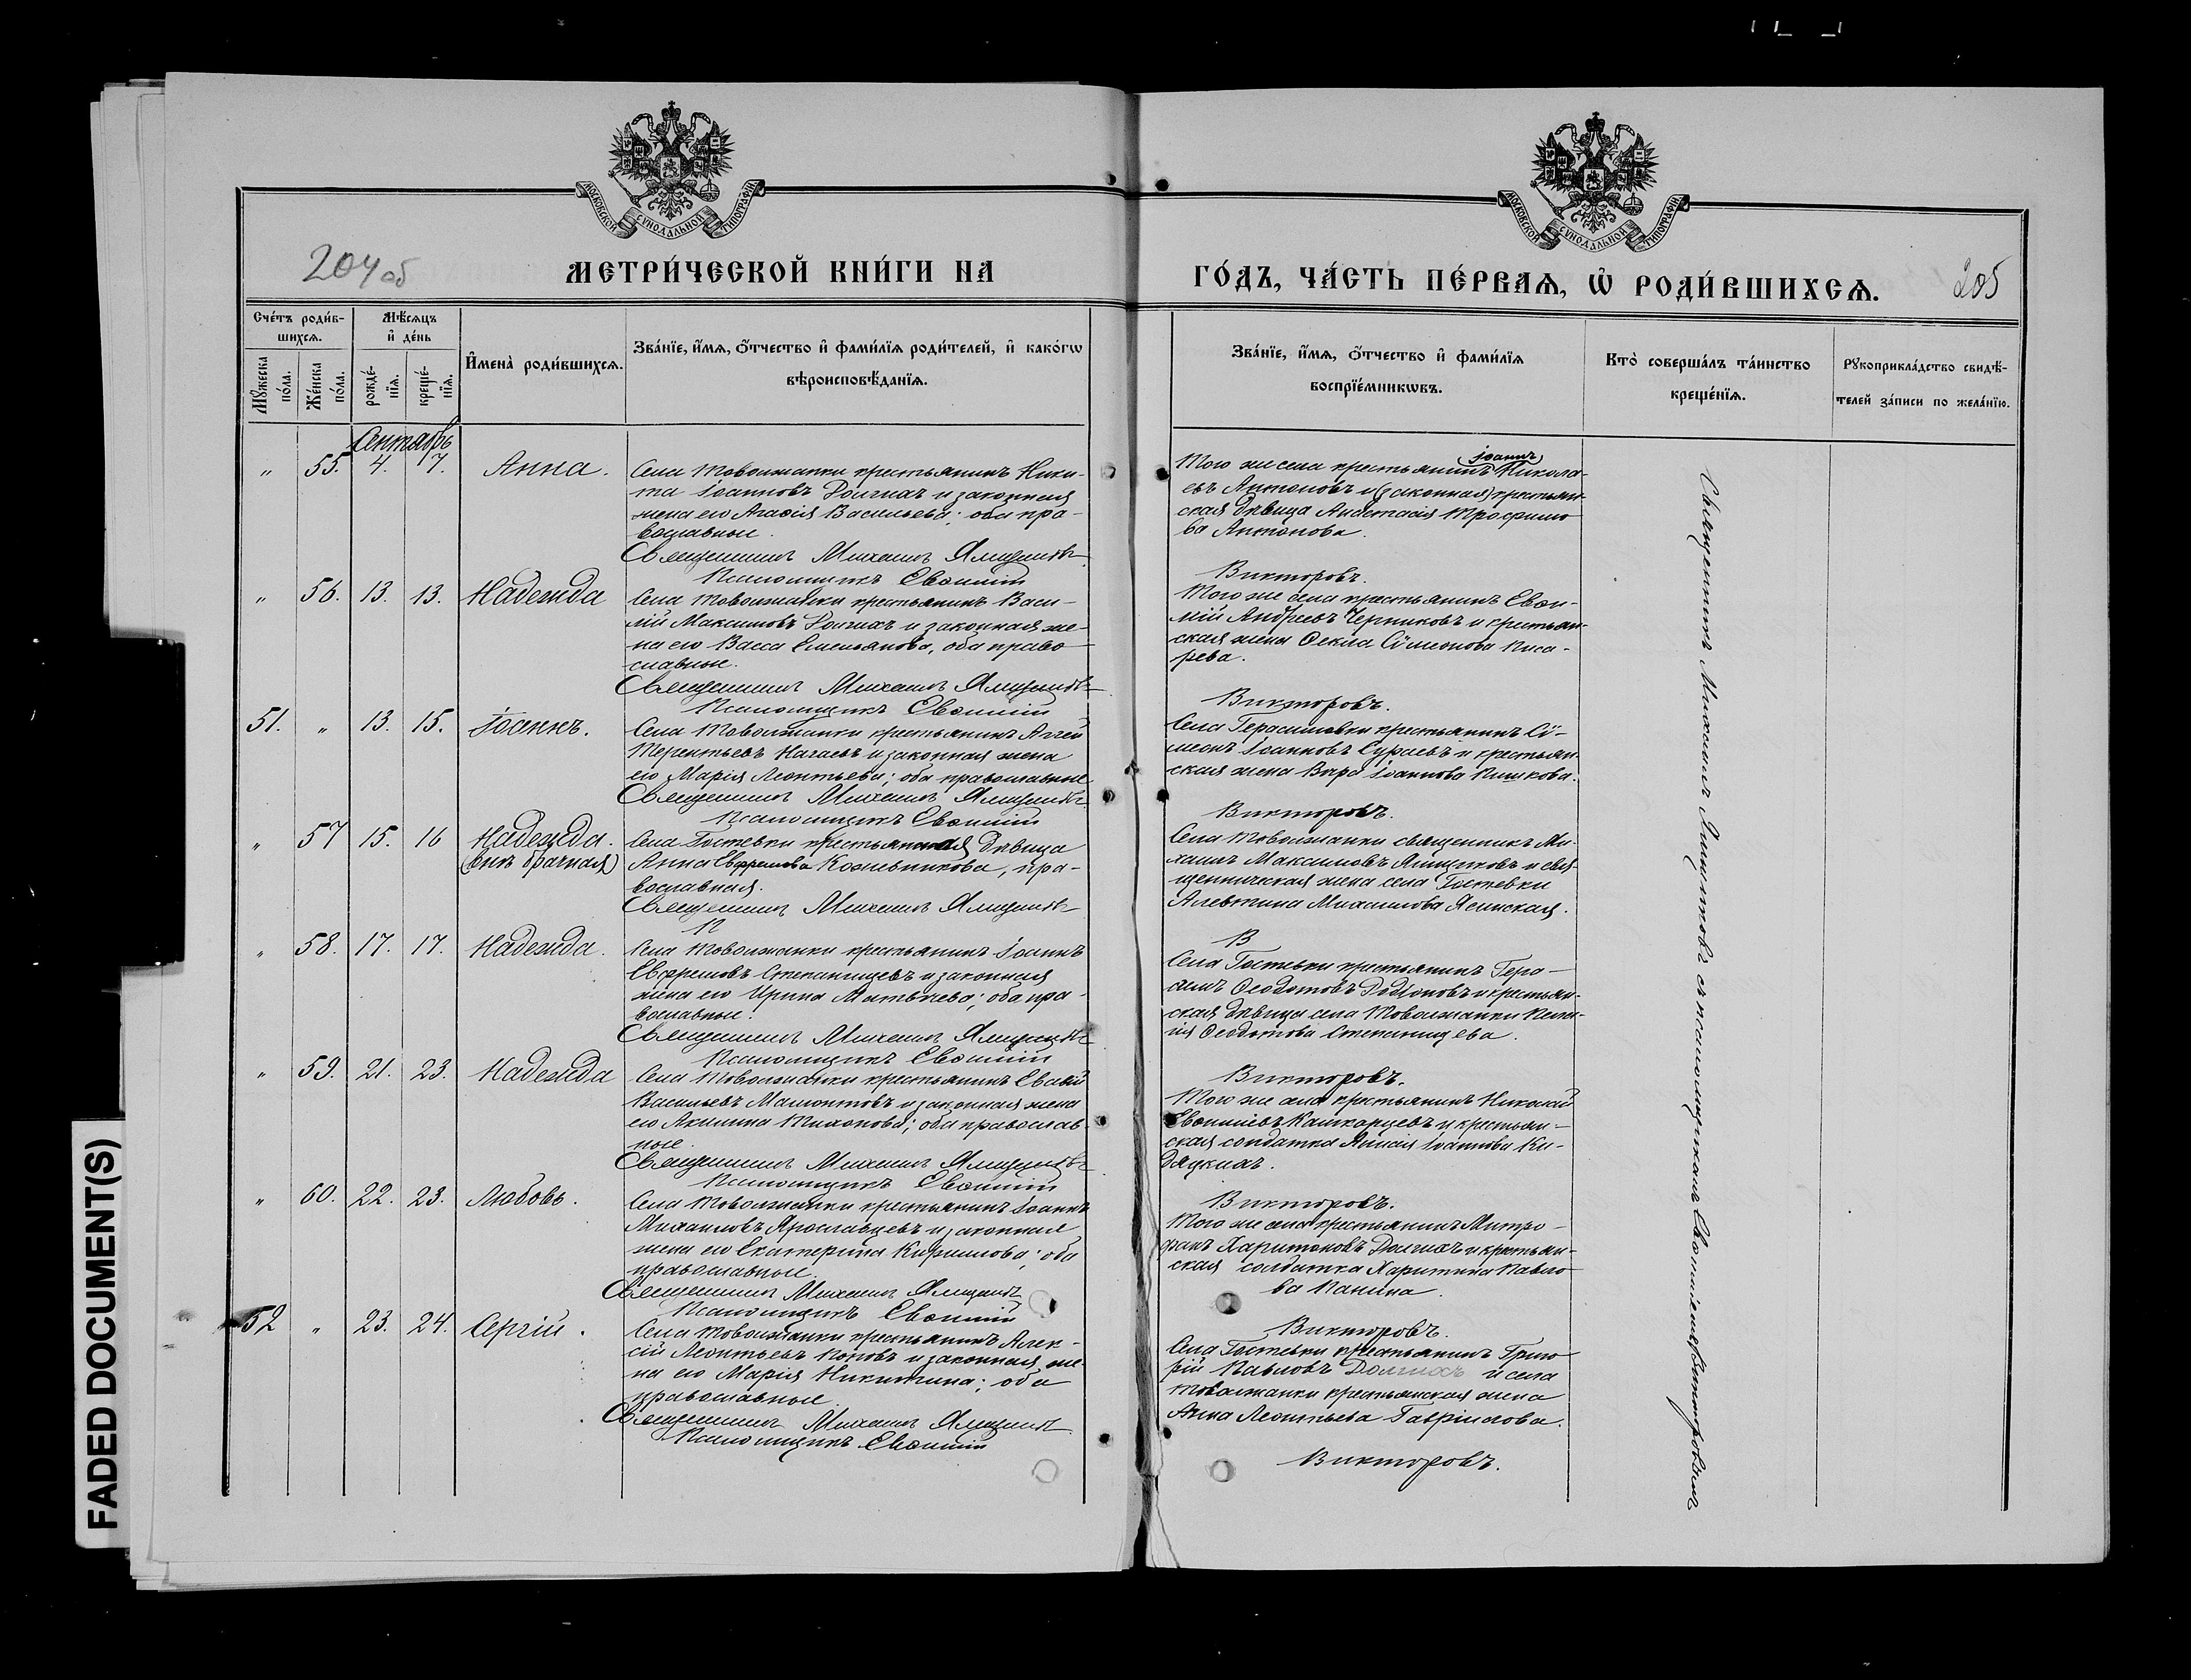 МОСКОВСКОЙ СѴНОДАЛЬНОЙ ТИПОГРАФІИ
204 об
МЕТРИ́ЧЕСКОЙ КНИ́ГИ НА
Сче́тъ роди́в-
шихсѧ.
Мѣ́сѧцъ
и҆ де́нь
Мꙋ́жеска
по́ла.
Же́нска
по́ла.
рожде́-
нїѧ.
креще́-
нїѧ.
И҆мена̀ роди́вшихсѧ.
Зва́нїе, и҆́мѧ, ѻ҆́тчество и҆ фами́лїѧ роди́телей, и҆ како́гѡ
вѣроисповѣ́данїѧ.
Сентябрь
" 55. 4. 7. Анна.
Села Товолжанки крестьянинъ Ники-
та Іоанновъ Долгихъ и законная
жена его Агаѳія Васильева; оба пра-
вославные.
Священникъ Михаилъ Ямщиковъ
Псаломщикъ Евѳимій
" 56. 13. 13. Надежда
Села Товолжанки крестьянинъ Васи-
лій Максимовъ Долгихъ и законная же-
на его Васса Емельянова, оба право-
славные.
Священникъ Михаилъ Ямщиковъ
Псаломщикъ Евѳимій
51. " 13. 15. Іоаннъ.
Села Товолжанки крестьянинъ Аггей
Терентьевъ Нагаевъ и законная жена
его Марія Леонтьева; оба православные
Священникъ Михаилъ Ямщиковъ
Псаломщикъ Евѳимій
" 57 15. 16 Надежда.
(внѣ брачная)
Села Гостевки крестьянская дѣвица
Анна Ефремова Кожевникова, пра-
вославная.
Священникъ Михаилъ Ямщиковъ
П
" 58. 17. 17. Надежда.
Села Товолжанки крестьянинъ Іоаннъ
Ефремовъ Степанищевъ и законная
жена его Ирина Матвѣева; оба пра-
вославные.
Священникъ Михаилъ Ямщиковъ
Псаломщикъ Евѳимій
" 59. 21. 23. Надежда
Села Товолжанки крестьянинъ
Васильевъ Мамонтовъ и законная жена
его Акилина Тихонова; оба православ-
ные.
Священникъ Михаилъ Ямщиковъ
Псаломщикъ Евѳимій
" 60. 22. 23. Любовь.
Села Товолжанки крестьянинъ Іоаннъ
Михаиловъ Ярославцевъ и законная
жена его Екатерина Кириллова; оба
православные.
Священникъ Михаилъ Ямщиковъ
Псаломщикъ Евѳимій
52 " 23. 24. Сергій.
Села Товолжанки крестьянинъ Алек-
сій Леонтьевъ Поповъ и законная же-
на его Марія Никитина; оба
православные.
Священникъ Михаилъ Ямщиковъ
Псаломщикъ Евѳимій
МОСКОВСКОЙ СѴНОДАЛЬНОЙ ТИПОГРАФІИ
ГО́ДЪ, ЧА́СТЬ ПЕ́РВАѦ, Ѡ҆ РОДИ́ВШИХСѦ.
205
Зва́нїе, и҆́мѧ, ѻ҆́тчество и҆ фами́лїѧ
воспрїе́мникѡвъ.
Кто̀ соверша́лъ та́инство
креще́нїѧ.
Рꙋкоприкла́дство свидѣ́-
телей за́писи по жела́нїю.
Іоаннъ
Того же села крестьянинъ Никола-
евъ Антоновъ и (законная) крестьян-
ская дѣвица Анастасія Трофимо-
ва Антонова.
Викторовъ.
Того же села крестьянинъ Евѳи-
мій Андреевъ Черниковъ и крестьян-
ская жена Ѳекла Сѵмеонова Писа-
рева.
Викторовъ.
Села Герасимовки крестьянинъ Сѵ-
меонъ Іоанновъ Сураевъ и крестьян-
ская жена Вѣра Іоаннова Пишкова.
Викторовъ.
Села Товолжанки священникъ Ми-
хаилъ Максимовъ Ямщиковъ и свя-
щенническая жена села Гостевки
Алевтина Михаилова Ясинская.
В
Села Гостевки крестьянинъ Гера-
симъ Ѳеодотовъ Родіоновъ и крестьян-
ская дѣвица села Товолжанки
Ѳеодотова Степанищева.
Викторовъ.
Того же села крестьянинъ Николай
Евѳиміевъ Кашкорцевъ и крестьян-
ская солдатка Іоаннова Ки-
дяцкихъ.
Викторовъ.
Того же села крестьянинъ Митро-
фанъ Харитоновъ Долгихъ и крестьян-
ская солдатка Харитина Павло-
ва Панина.
Викторовъ.
Села Гостевки крестьянинъ Григо-
рій Павловъ Долгихъ и села
Товолжанки крестьянская жена
Анна Леонтьева Гавріилова.
Викторовъ.
Священникъ Михаилъ Ямщиковъ съ псаломщикомъ Евѳиміемъ Викторовымъ
FADED DOCUMENT(S)